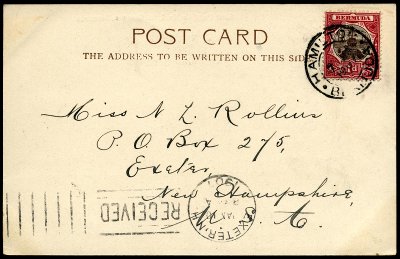 BERMUDA
POST CARD
THE ADDRESS TO BE WRITTEN ON THIS SIDE
HAMILTON
Miss N L Rollins
P. O. Box 275,
Exeter
New Hampshire
U. S. A.
RECEIVED
EXETER, N.H.
1907